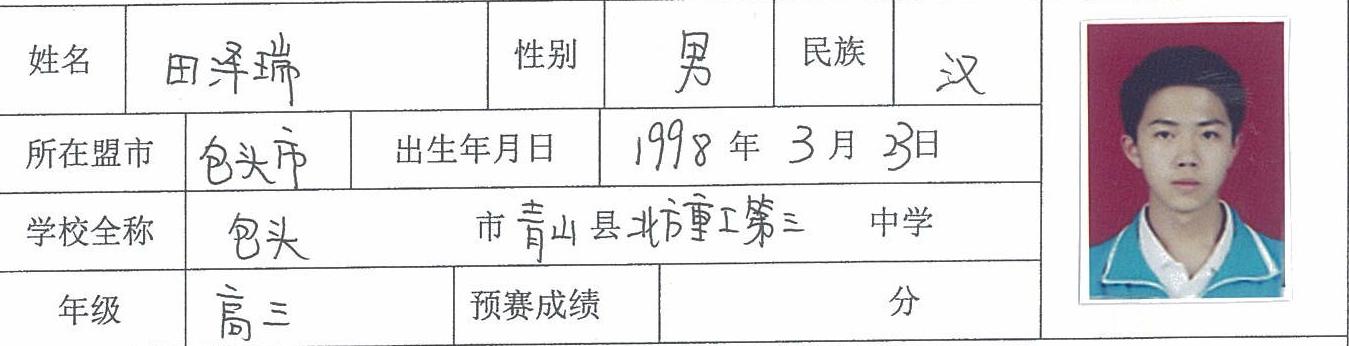 姓名 田泽瑞 性别 男 民族 汉
所在盟市 包头市 出生年月日 1998年3月23日
学校全称 包头 市青山县北方重工第三 中学
年级 高三 预赛成绩 分